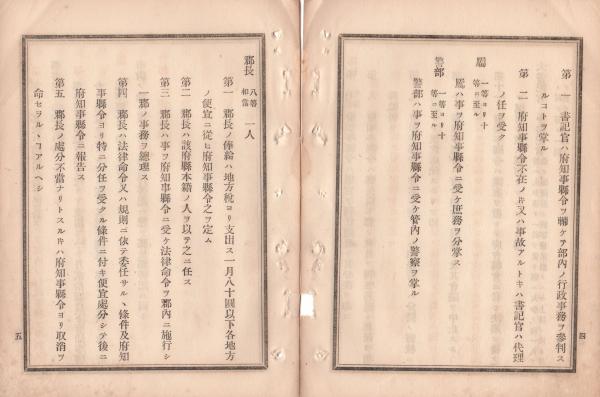 第一 書記官ハ府知事縣令ヲ輔ケテ部内ノ行政事務ヲ參判ス
ルコトヲ掌ル
第二 府知事縣令不在ノ時又ハ事故アルトキハ書記官ハ代理
ノ任ヲ受ク
屬 一等ヨリ十
等ニ至ル
屬ハ事ヲ府知事縣令ニ受ケ庶務ヲ分掌ス
警部 一等ヨリ十
等ニ至ル
警部ハ事ヲ府知事縣令ニ受ケ管内ノ警察ヲ掌ル
四
郡長 八等
相當 一人
第一 郡長ノ俸給ハ地方稅ヨリ支出ス一月八十圓以下各地方
ノ便宜ニ從ヒ府知事縣令之ヲ定ム
第二 郡長ハ該府縣本籍ノ人ヲ以テ之ニ任ス
第三 郡長ハ事ヲ府知事縣令ニ受ケ法律命令ヲ郡内ニ施行シ
一郡ノ事務ヲ總理ス
第四 郡長ハ法律命令又ハ規則ニ依テ委任サルヽ條件及府知
事縣令ヨリ特ニ分任ヲ受クル條件ニ付キ便宜處分シテ後ニ
府知事縣令ニ報告ス
第五 郡長ノ處分不當ナリトスル時ハ府知事縣令ヨリ取消ヲ
命セラルヽコアルヘシ
五